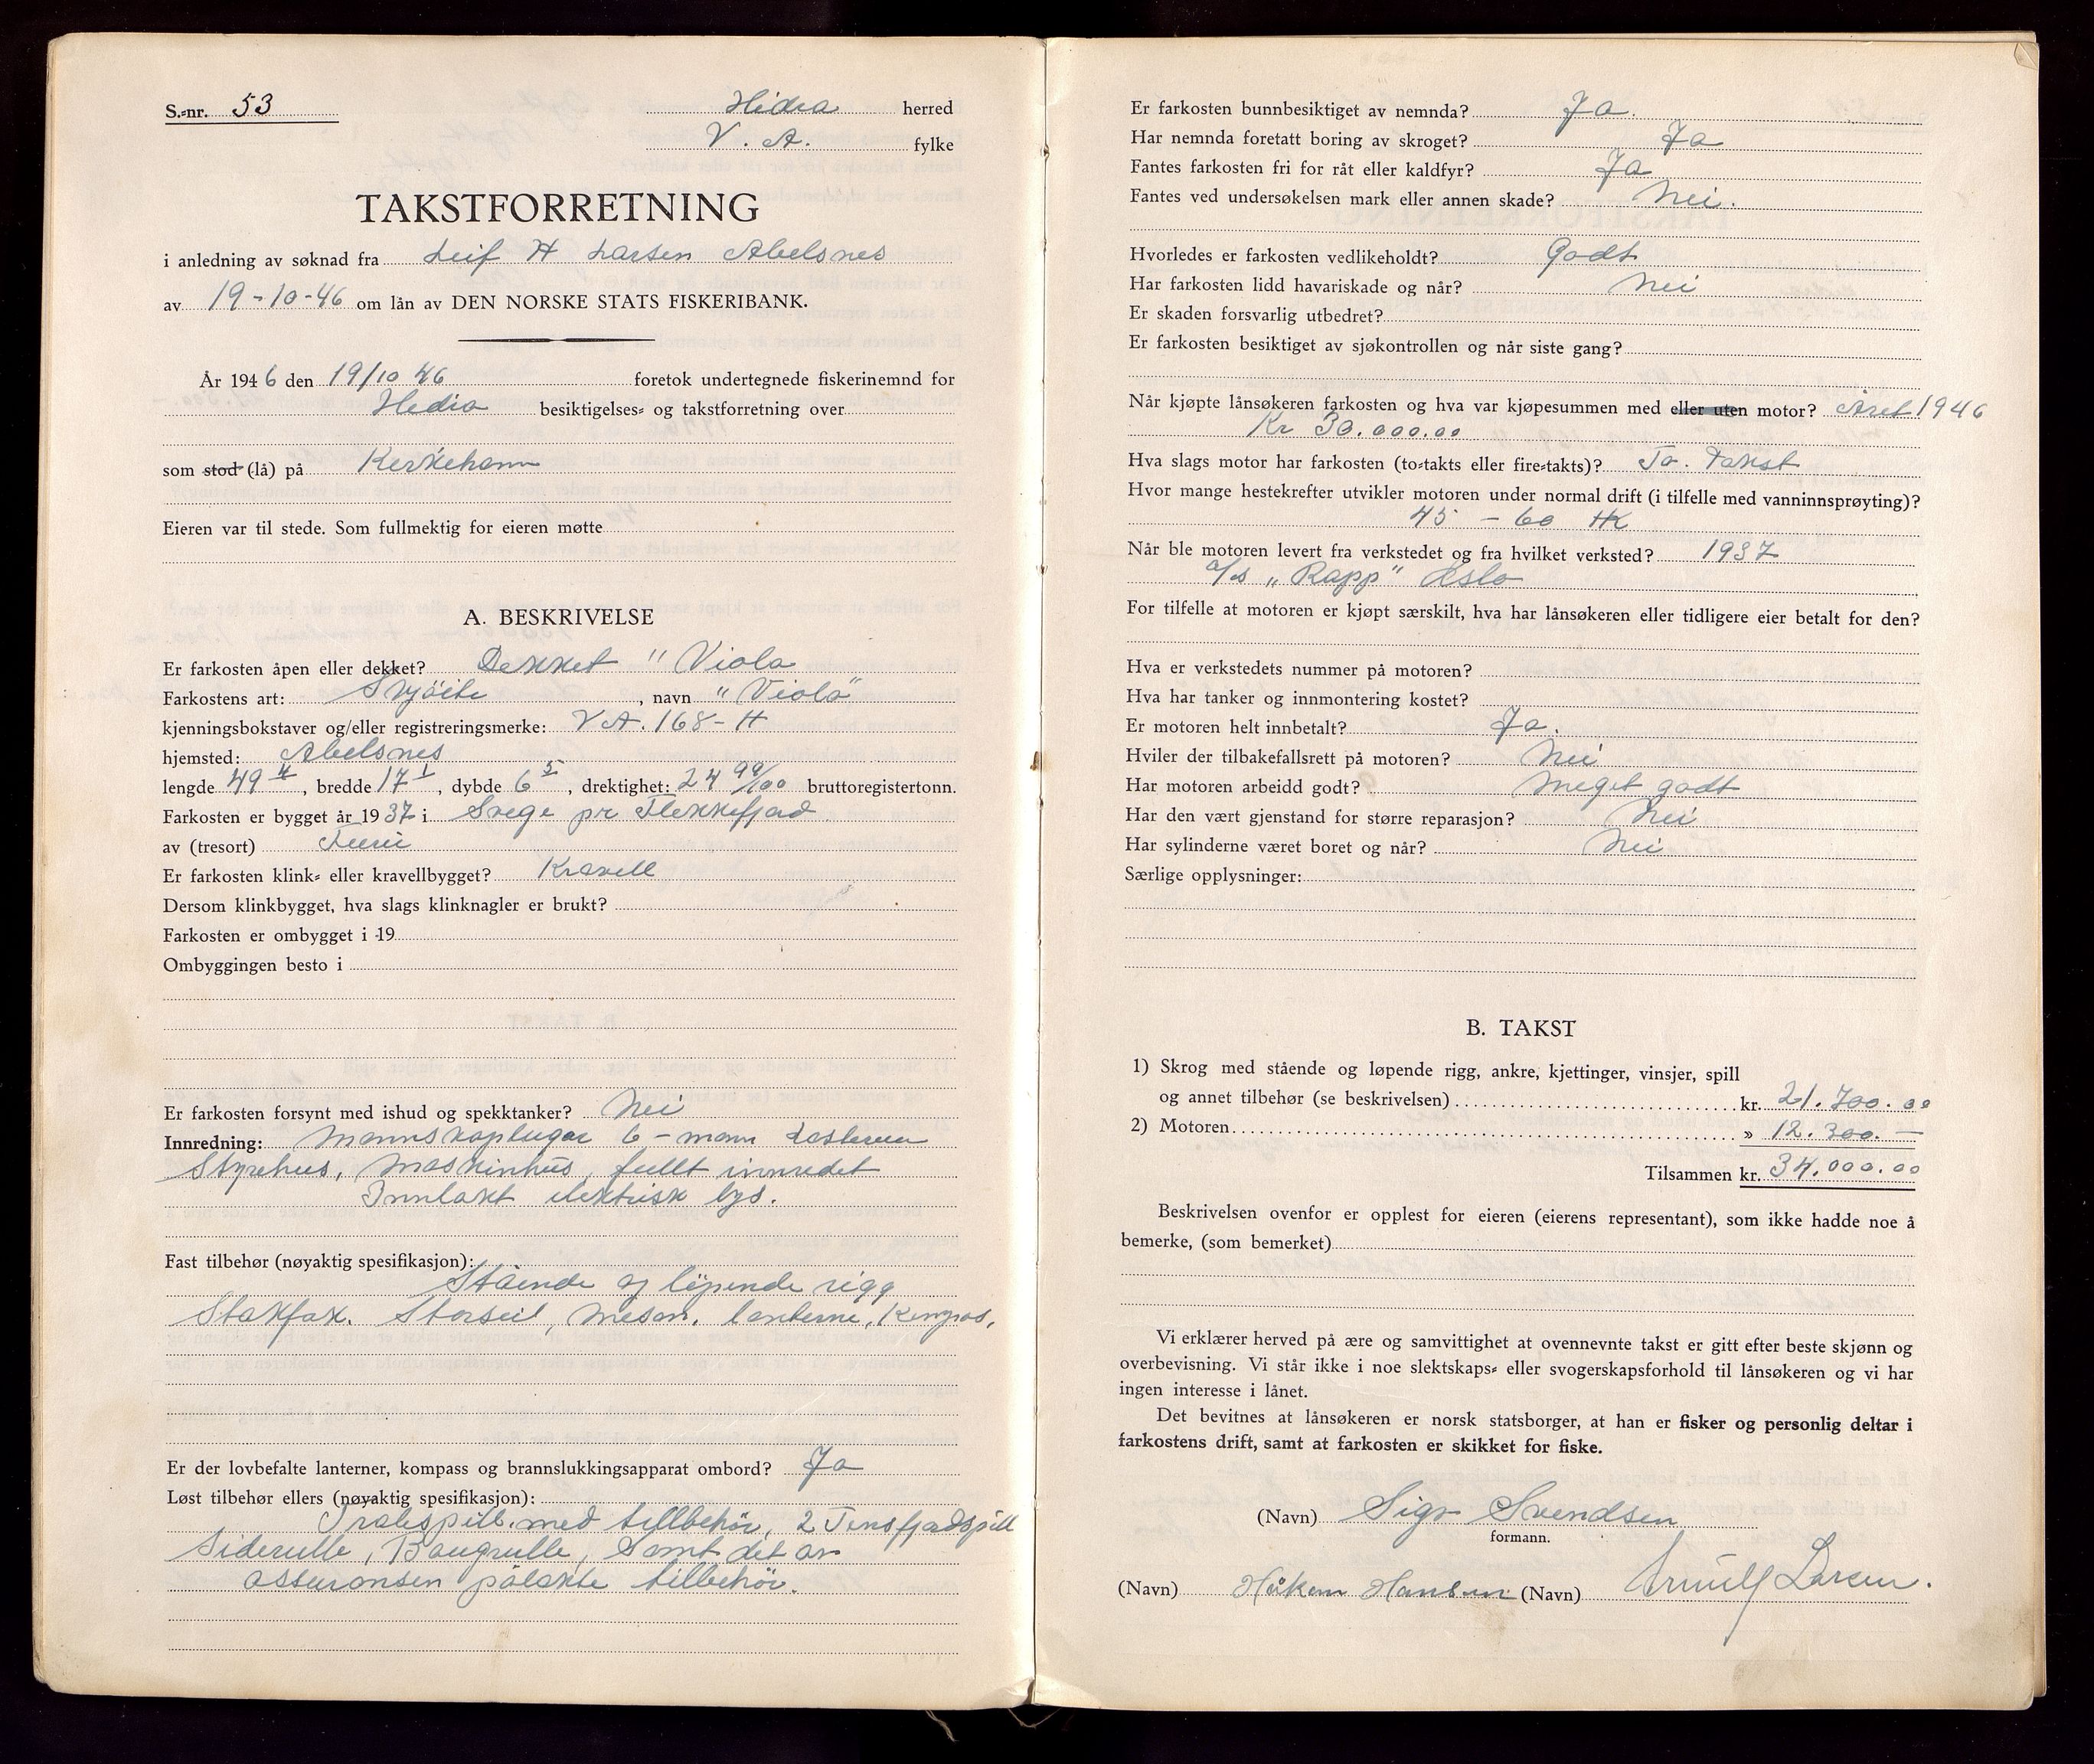 S.-nr. 53
Hidra herred
V. A. fylke
TAKSTFORRETNING
i anledning av søknad fra Leif H Larsen Abelsnes
av 19-10-46 om lån av DEN NORSKE STATS FISKERIBANK.
År 1946 den 19/10 46 foretok undertegnede fiskerinemnd for
Hedra besiktigelses- og takstforretning over
som stod (lå) på Kerkehamn
Eieren var til stede. Som fullmektig for eieren møtte
A. BESKRIVELSE
Er farkosten åpen eller dekket? Dekket " Viola
Farkostens art: Skjöite, navn "Viola"
kjenningsbokstaver og/eller registreringsmerke: VA. 168-H
hjemsted: Abelsnes
lengde 49 4, bredde 17 1, dybde 6 5, drektighet: 24 99/100 bruttoregistertonn.
Farkosten er bygget år 1937 i Svege pr Flekkefjord
av (tresort) Furu
Er farkosten klink- eller kravellbygget? Kravell
Dersom klinkbygget, hva slags klinknagler er brukt?
Farkosten er ombygget i 19
Ombyggingen besto i
Er farkosten forsynt med ishud og spekktanker? Nei
Innredning: Mannskaplugar 6-mann Lasterum
Styrehus, Maskinhus, fullt innredet
Innlakt elektrisk lys.
Fast tilbehør (nøyaktig spesifikasjon):
Stående og löpende rigg
Stakfok. Storseil, Mesan, lanterne, Kompas,
Er der lovbefalte lanterner, kompass og brannslukkingsapparat ombord? Ja
Løst tilbehør ellers (nøyaktig spesifikasjon):
Tralespill med tillbehör, 2 Tensfjordspill
Siderulle, Baugrulle, Samt det av
assuransen pålakte tillbehör.
Er farkosten bunnbesiktiget av nemnda? Ja.
Har nemnda foretatt boring av skroget? Ja
Fantes farkosten fri for råt eller kaldfyr? Ja
Fantes ved undersøkelsen mark eller annen skade? Nei.
Hvorledes er farkosten vedlikeholdt? Godt
Har farkosten lidd havariskade og når? Nei
Er skaden forsvarlig utbedret?
Er farkosten besiktiget av sjøkontrollen og når siste gang?
Når kjøpte lånsøkeren farkosten og hva var kjøpesummen med eller uten motor? Året 1946
Kr 30.000.00
Hva slags motor har farkosten (to-takts eller fire-takts)? To. Takst
Hvor mange hestekrefter utvikler motoren under normal drift (i tilfelle med vanninnsprøyting)?
45 - 60 HK
Når ble motoren levert fra verkstedet og fra hvilket verksted? 1937
a/s "Rapp" Oslo
For tilfelle at motoren er kjøpt særskilt, hva har lånsøkeren eller tidligere eier betalt for den?
Hva er verkstedets nummer på motoren?
Hva har tanker og innmontering kostet?
Er motoren helt innbetalt? Ja.
Hviler der tilbakefallsrett på motoren? Nei
Har motoren arbeidd godt? Meget godt
Har den vært gjenstand for større reparasjon? Nei
Har sylinderne været boret og når? Nei
Særlige opplysninger:
B. TAKST
1) Skrog med stående og løpende rigg, ankre, kjettinger, vinsjer, spill
og annet tilbehør (se beskrivelsen) kr. 21.700.00
2) Motoren » 12.300.—
Tilsammen kr. 34.000.00
Beskrivelsen ovenfor er opplest for eieren (eierens representant), som ikke hadde noe å
bemerke, (som bemerket)
Vi erklærer herved på ære og samvittighet at ovennevnte takst er gitt efter beste skjønn og
overbevisning. Vi står ikke i noe slektskaps- eller svogerskapsforhold til lånsøkeren og vi har
ingen interesse i lånet.
Det bevitnes at lånsøkeren er norsk statsborger, at han er fisker og personlig deltar i
farkostens drift, samt at farkosten er skikket for fiske.
(Navn) Sigv Svendsen
formann.
(Navn) Håkon Hansen (Navn) Arnulf Larsen.